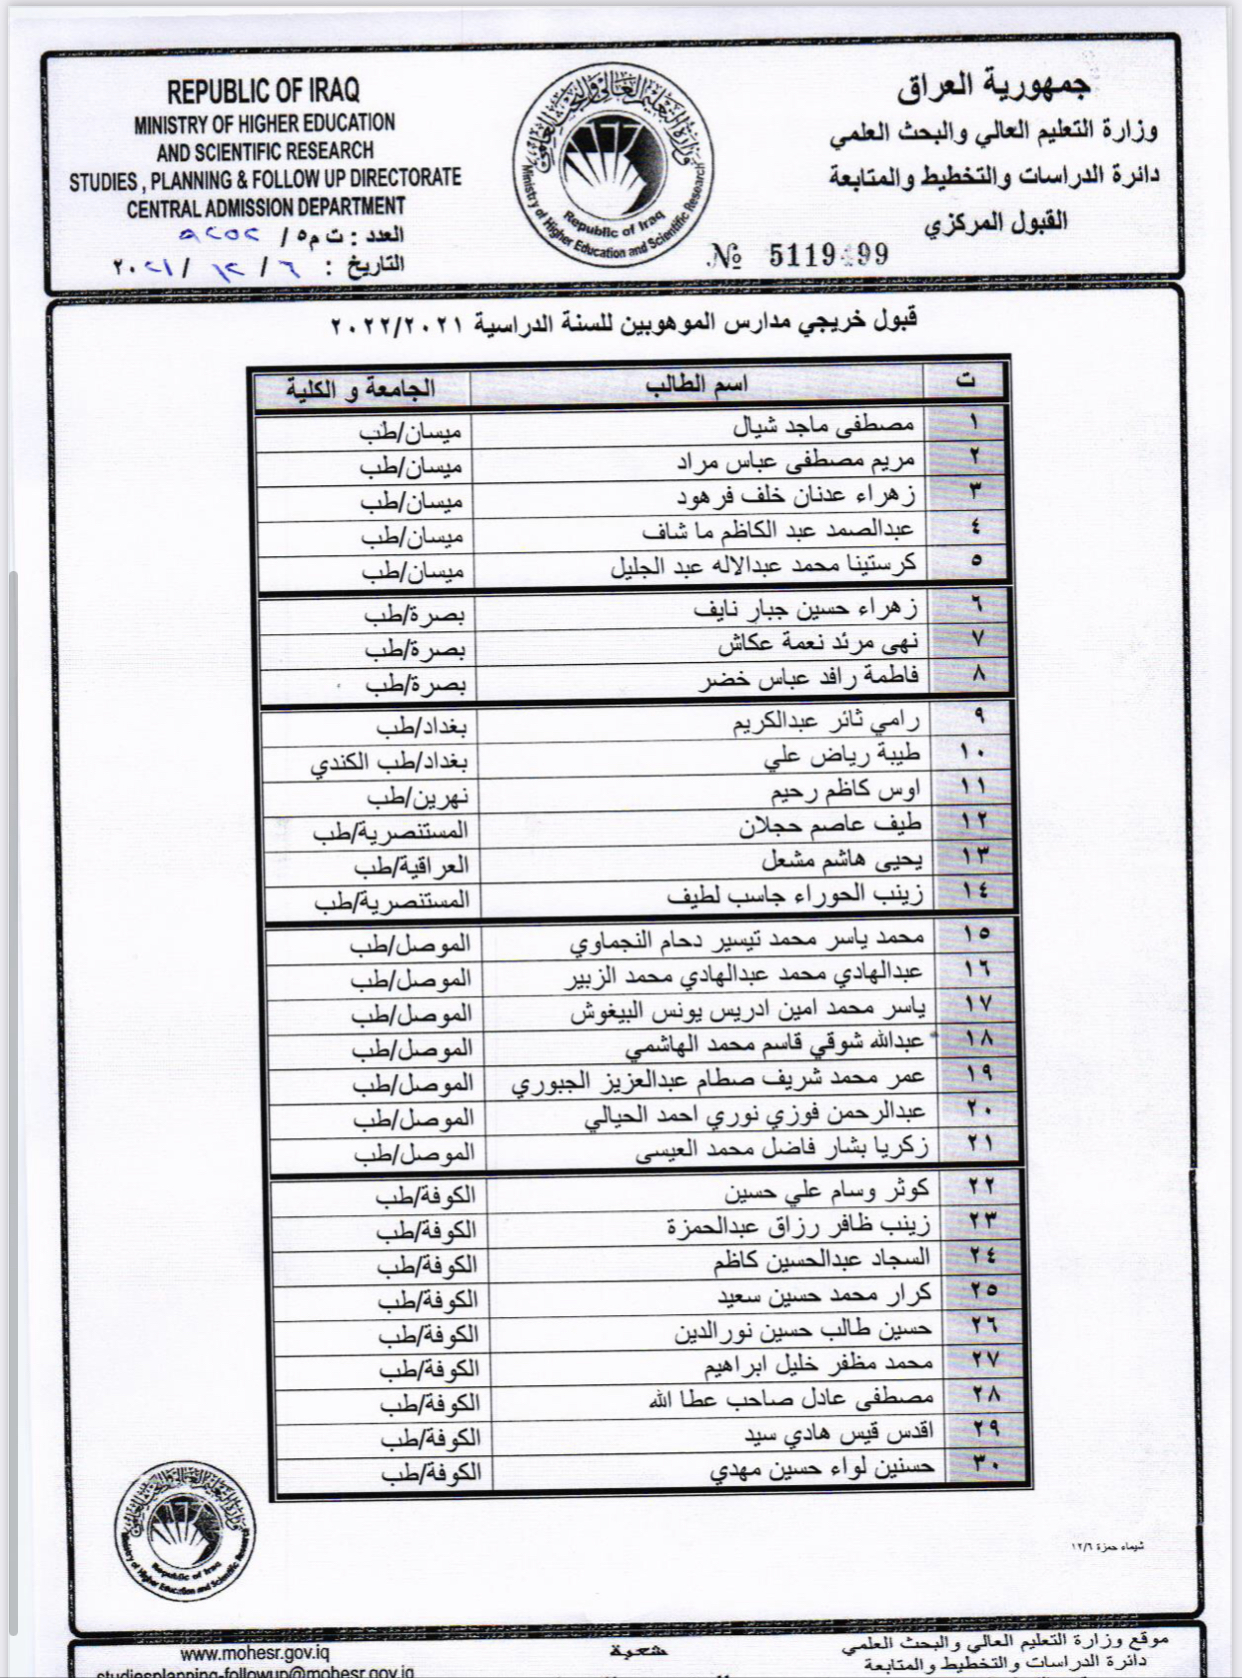 جمهورية العراق
وزارة التعليم العالي والبحث العلمي
دائرة الدراسات والتخطيط والمتابعة
القبول المركزي
وزارة التعليم العالي والبحث العلمي
Ministry of Higher Education and Scientific Research
Republic of Iraq
№ 5119499
REPUBLIC OF IRAQ
MINISTRY OF HIGHER EDUCATION
AND SCIENTIFIC RESEARCH
STUDIES , PLANNING & FOLLOW UP DIRECTORATE
CENTRAL ADMISSION DEPARTMENT
العدد : ت م٥ /
التاريخ : ٦ / ١٢ / ٢٠٢١
قبول خريجي مدارس الموهوبين للسنة الدراسية ٢٠٢٢/٢٠٢١
ت اسم الطالب الجامعة و الكلية
١ مصطفى ماجد شيال ميسان/طب
٢ مريم مصطفى عباس مراد ميسان/طب
٣ زهراء عدنان خلف فرهود ميسان/طب
٤ عبدالصمد عبد الكاظم ما شاف ميسان/طب
٥ كرستينا محمد عبدالاله عبد الجليل ميسان/طب
٦ زهراء حسين جبار نايف بصرة/طب
٧ نهى مرئد نعمة عكاش بصرة/طب
٨ فاطمة رافد عباس خضر بصرة/طب
٩ رامي ثائر عبدالكريم بغداد/طب
١٠ طيبة رياض علي بغداد/طب الكندي
١١ اوس كاظم رحيم نهرين/طب
١٢ طيف عاصم حجلان المستنصرية/طب
١٣ يحيى هاشم مشعل العراقية/طب
١٤ زينب الحوراء جاسب لطيف المستنصرية/طب
١٥ محمد ياسر محمد تيسير دحام النجماوي الموصل/طب
١٦ عبدالهادي محمد عبدالهادي محمد الزبير الموصل/طب
١٧ ياسر محمد امين ادريس يونس البيغوش الموصل/طب
١٨ عبدالله شوقي قاسم محمد الهاشمي الموصل/طب
١٩ عمر محمد شريف صطام عبدالعزيز الجبوري الموصل/طب
٢٠ عبدالرحمن فوزي نوري احمد الحيالي الموصل/طب
٢١ زكريا بشار فاضل محمد العيسى الموصل/طب
٢٢ كوثر وسام علي حسين الكوفة/طب
٢٣ زينب ظافر رزاق عبدالحمزة الكوفة/طب
٢٤ السجاد عبدالحسين كاظم الكوفة/طب
٢٥ كرار محمد حسين سعيد الكوفة/طب
٢٦ حسين طالب حسين نورالدين الكوفة/طب
٢٧ محمد مظفر خليل ابراهيم الكوفة/طب
٢٨ مصطفى عادل صاحب عطا الله الكوفة/طب
٢٩ اقدس قيس هادي سيد الكوفة/طب
٣٠ حسنين لواء حسين مهدي الكوفة/طب
شيماء حمزة ١٢/٦
وزارة التعليم العالي والبحث العلمي
Ministry of Higher Education and Scientific Research
Republic of Iraq
موقع وزارة التعليم العالي والبحث العلمي
دائرة الدراسات والتخطيط والمتابعة
شعبة
www.mohesr.gov.iq
studiesplanning-followup@mohesr.gov.iq